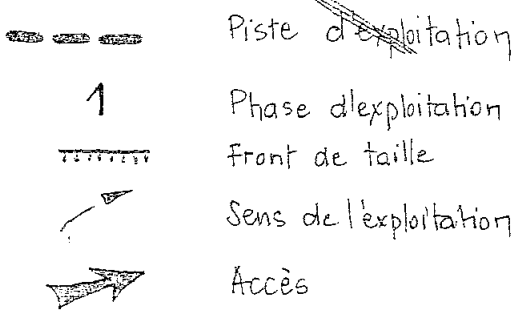 Piste d'exploitation
1 Phase d'exploitation
Front de taille
Sens de l'exploitation
Accès